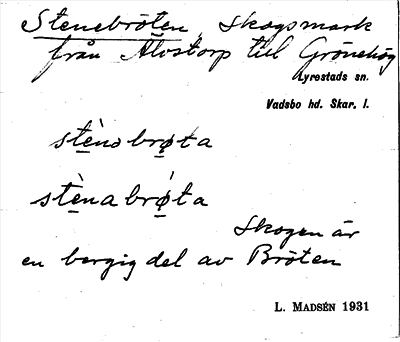 Stenebröten, Skogsmark
från Alvstorp till Grönehög
Lyrestads sn.
Vadsbo hd. Skar. l.
stènebrǿta
stènabrǿta
Skogen är
en bergig del av Bröten
L. MADSÉN 1931